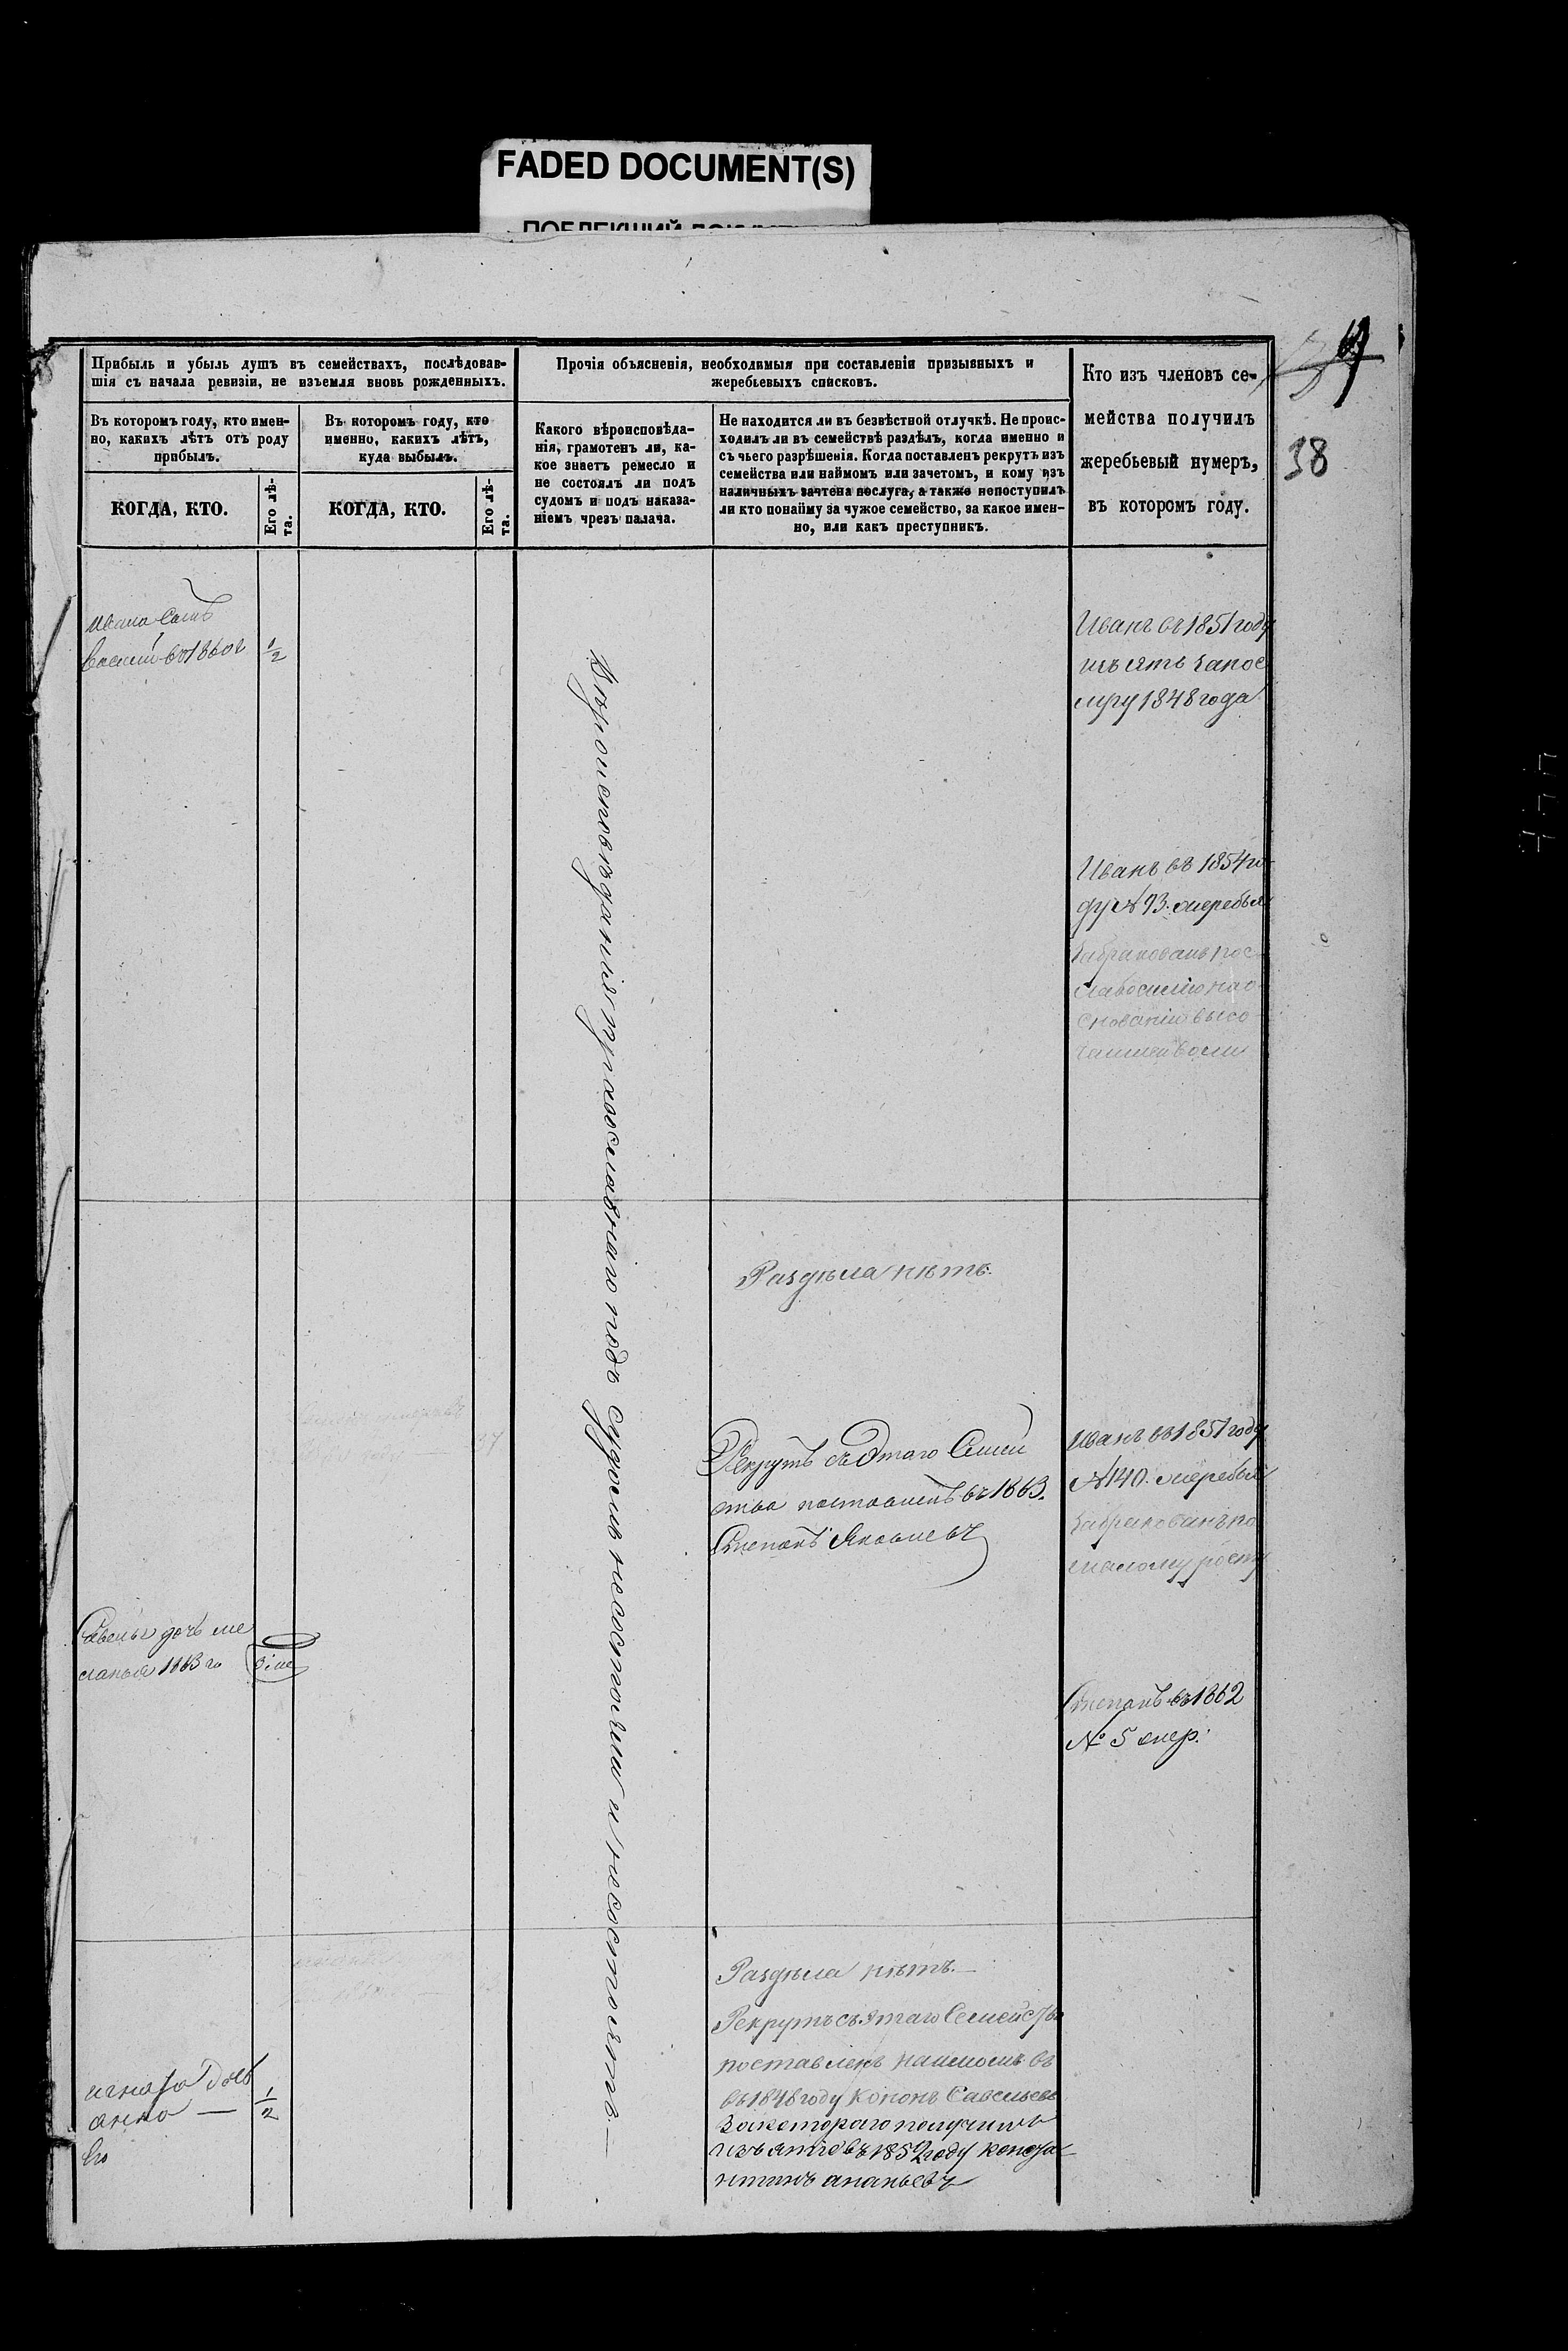 FADED DOCUMENT(S)
38
Прибыль и убыль душъ въ семействахъ, послѣдовав-
шія съ начала ревизіи, не изъемля вновь рожденныхъ.
Въ которомъ году, кто имен-
но, какихъ лѣтъ отъ роду
прибылъ.
Въ которомъ году, кто
именно, какихъ лѣтъ,
куда выбылъ.
КОГДА, КТО.
Его лѣ-
та.
КОГДА, КТО.
Его лѣ-
та.
Прочія объясненія, необходимыя при составленіи призывныхъ и
жеребьевыхъ списковъ.
Какого вѣроисповѣда-
нія, грамотенъ ли, ка-
кое знаетъ ремесло и
не состоялъ ли подъ
судомъ и подъ наказа-
ніемъ чрезъ палача.
Не находится ли въ безвѣстной отлучкѣ. Не проис-
ходилъ ли въ семействѣ раздѣлъ, когда именно и
съ чьего разрѣшенія. Когда поставленъ рекрутъ изъ
семейства или наймомъ или зачетомъ, и кому изъ
наличныхъ зачтена послуга, а также непоступилъ
ли кто понайму за чужое семейство, за какое имен-
но, или какъ преступникъ.
Кто изъ членовъ се-
мейства получилъ
жеребьевый нумеръ,
въ которомъ году.
Ивана сынъ
1860
1/2
Иванъ въ 1851 году
изъятъ
1848 года
Иванъ въ 1854 го-
ду № 93. жеребья
забракованъ по с-
лабосилію на о-
снованіи высо-
чайшей воли
Вѣроисповѣданія православнаго подъ судомъ несостояли и несостоятъ.—
Раздѣла нѣтъ.
Рекрутъ съ Этаго Семей
ства поставленъ въ 1863.
Степанъ Яковлевъ
Иванъ въ 1851 году
№ 140. жеребья
забракованъ по
малому росту
37
Савелья дочь ме
ланья 1863 го
Степанъ въ 1862
№ 5 жер.
Раздѣла нѣтъ.—
Рекрутъ съ этаго Семейства
поставленъ наймомъ въ
въ 1848 году Кононъ Савельевъ
За котораго получилъ
изъятіе въ 1852 году конста
нтинъ ананьевъ
игната дочь
анна —
1/2
Его